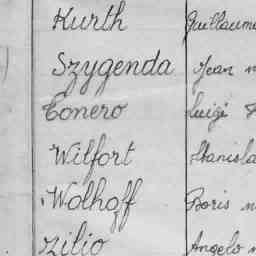 Kurth Guillaume
Szygenda Jean
Conero Luigi
Wilfort Stanisla
Wolhoff Boris
Zilio Angelo